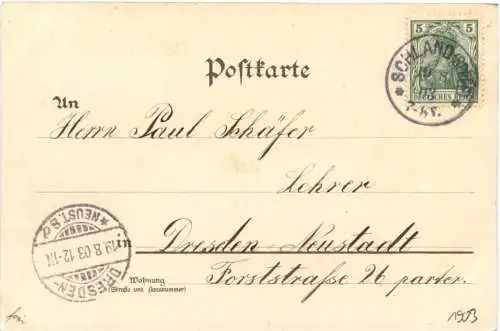 5 5
SCHLAND
19 8
03
7-8V.
Postkarte
An
Herrn Paul Schäfer
Lehrer
in Dresden-Neustadt
Wohnung
(Straße und Hausnummer)
Forststraße 26 parter.
DRESDEN-
NEUST. 8.
19.8.03.12-1N
1903